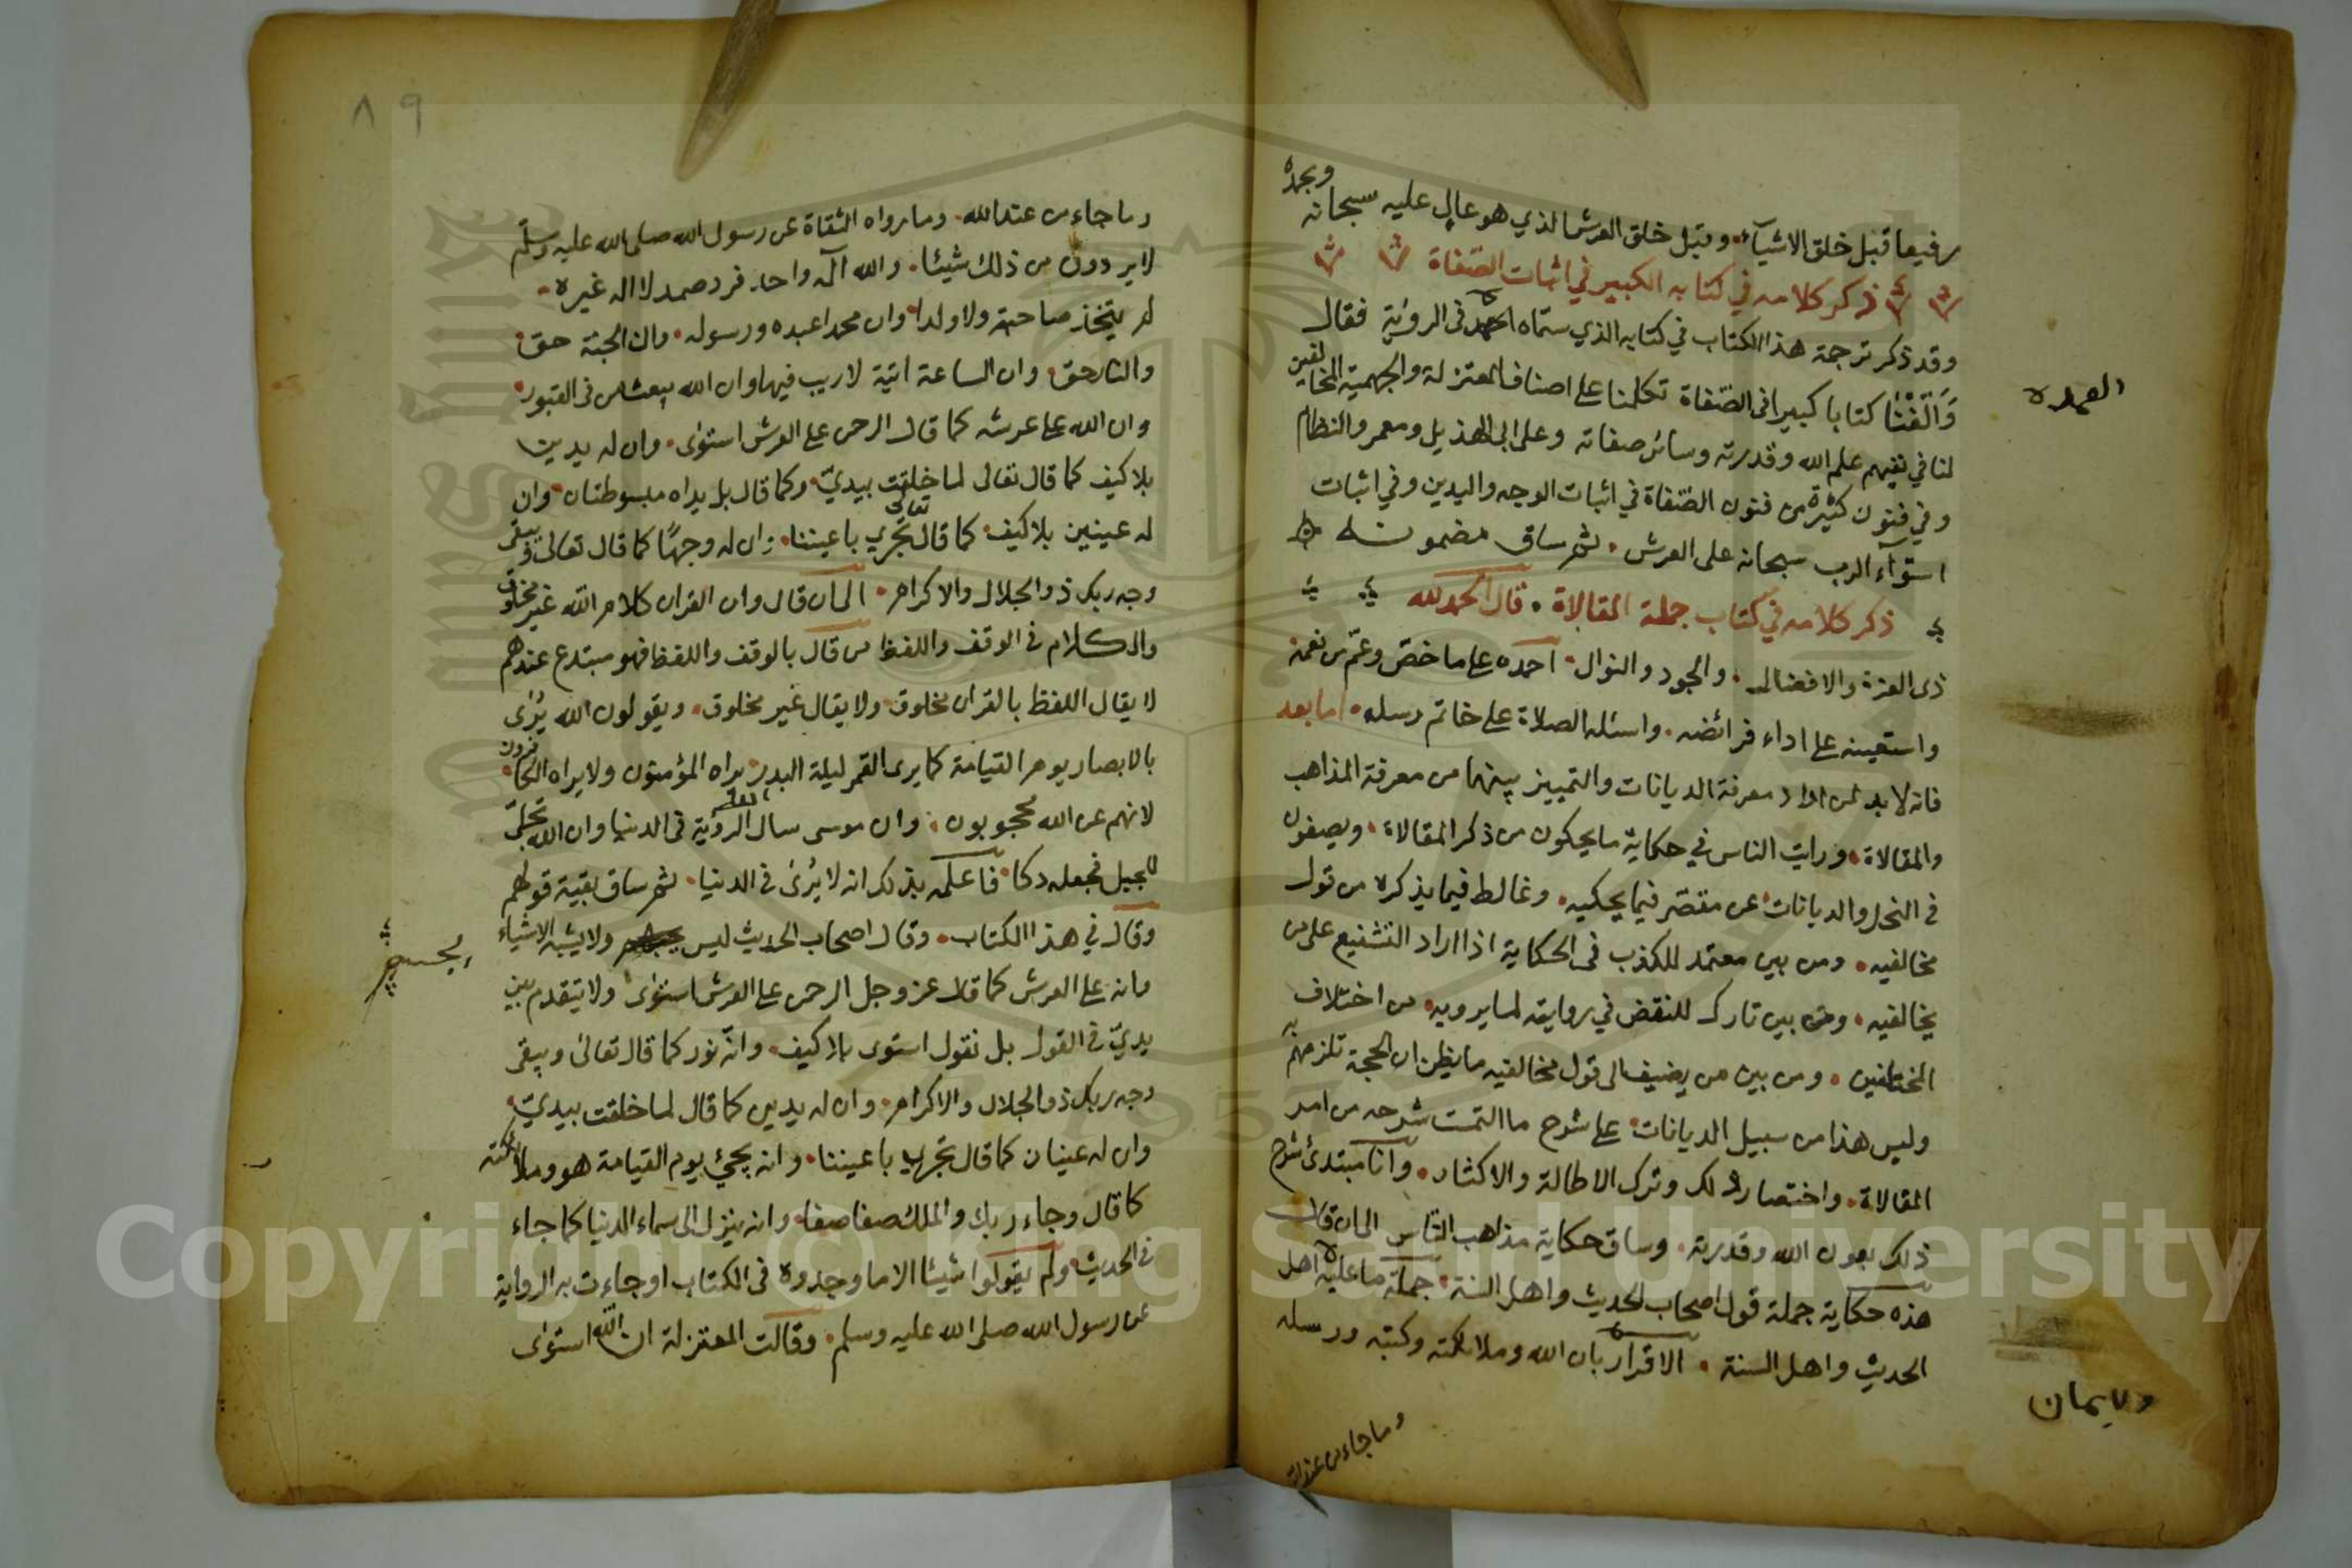 رفيعا قبل خلق الاشيآء وقبل خلق العرش الذي هو عال عليه سبحانه وبحمده
ذكر كلامه في كتابه الكبير في اثبات الصّفاة
وقد ذكر ترجمة هذا الكتاب في كتابه الذي سمّاه العمدة في الرؤية فقال
وَالَّفْنَا كتابا كبيرا في الصّفاة تكلمنا على اصناف المعتزلة والجهمية المخالفين
لنا في نفيهم علم الله وقدرته وسائر صفاته وعلى ابي الهذيل ومعمر والنظام
وفي فنون كثيرة من فنون الصّفاة في اثبات الوجه واليدين وفي اثبات
استوآء الرب سبحانه على العرش ثم ساق مضمونه
ذكر كلامه في كتاب جملة المقالاة قال الحمد لله
ذي العزة والافضال والجود والنوال احمده على ما خصّ وعمّ من نعمه
واستعينه على اداء فرائضه واسئله الصلاة على خاتم رسله اما بعد
فانه لا بد لمن اراد معرفة الديانات والتمييز بينهما من معرفة المذاهب
والمقالاة ورايت الناس في حكاية ما يحكون من ذكر المقالاة ويصفون
في النحل والديانات عن مقتصر فيما يحكيه وغالط فيما يذكره من قول
مخالفيه ومن بين معتمد للكذب في الحكاية اذا اراد التشنيع على من
يخالفيه ومن بين تارك للنقض في روايته لما يرويه من اختلاف
المختلفين ومن بين من يضيف الى قول مخالفيه ما يظن ان الحجة تلزمهم به
وليس هذا من سبيل الديانات على شرح ما التمست شرحه من امر
المقالاة واختصار ذلك وترك الاطالة والاكثار وانا مبتدئ شرح
ذلك بعون الله وقدرته وساق حكاية مذاهب النّاس الى ان قال
هذه حكاية جملة قول اصحاب الحديث واهل السنة جملة ما عليه اهل
الحديث واهل السنة الاقرار بان الله وملائكته وكتبه ورسله
وما جاء من عند الله
العمده
والايمان
٨٩
وما جاء من عند الله وما رواه الثقاة عن رسول الله صلى الله عليه وسلّم
لا يردون من ذلك شيئا والله آله واحد فرد صمد لا اله غيره
لم يتخذ صاحبة ولا ولدا وان محمدا عبده ورسوله وان الجنة حق
والنار حق وان الساعة اتية لا ريب فيها وان الله يبعث من في القبور
وان الله على عرشه كما قال الرحمن على العرش استوى وان له يدين
بلا كيف كما قال تعالى لما خلقت بيديّ وكما قال بل يداه مبسوطتان وان
له عينين بلا كيف كما قال تعالى تجري باعيننا وان له وجهًا كما قال تعالى ويبقى
وجه ربك ذو الجلال والاكرام الى ان قال وان القران كلام الله غير مخلوق
والكلام في الوقف واللفظ من قال بالوقف واللفظ فهو مبتدع عندهم
لا يقال اللفظ بالقران مخلوق ولا يقال غير مخلوق ويقولون الله يُرى
بالابصار يوم القيامة كما يرى القمر ليلة البدر يراه المؤمنون ولا يراه الكافرون
لانهم عن الله محجوبون وان موسى سال الله الرؤية في الدنيا وان الله تجلّى
للجبل فجعله دكا فاعلمه بذلك انه لا يُرى في الدنيا ثم ساق بقية قولهم
وقال في هذا الكتاب وقال اصحاب الحديث ليس بجسم ولا يشبه الاشياء
وانه على العرش كما قال عز وجل الرحمن على العرش استوى ولا يتقدم بين
يديّ في القول بل نقول استوى بلا كيف وانّه نور كما قال تعالى ويبقى
وجه ربك ذو الجلال والاكرام وان له يدين كما قال لما خلقت بيديّ
وان له عينان كما قال تجري باعيننا وانه يجيئ يوم القيامة هو وملائكته
كما قال وجاء ربك والملك صفا صفا وانه ينزل الى سماء الدنيا كما جاء
في الحديث ولم يقولوا شيئا الا ما وجدوه في الكتاب او جاءت به الرواية
عن رسول الله صلى الله عليه وسلم وقالت المعتزلة ان الله استوى
بجسم
Copyright © King Saud University
1957